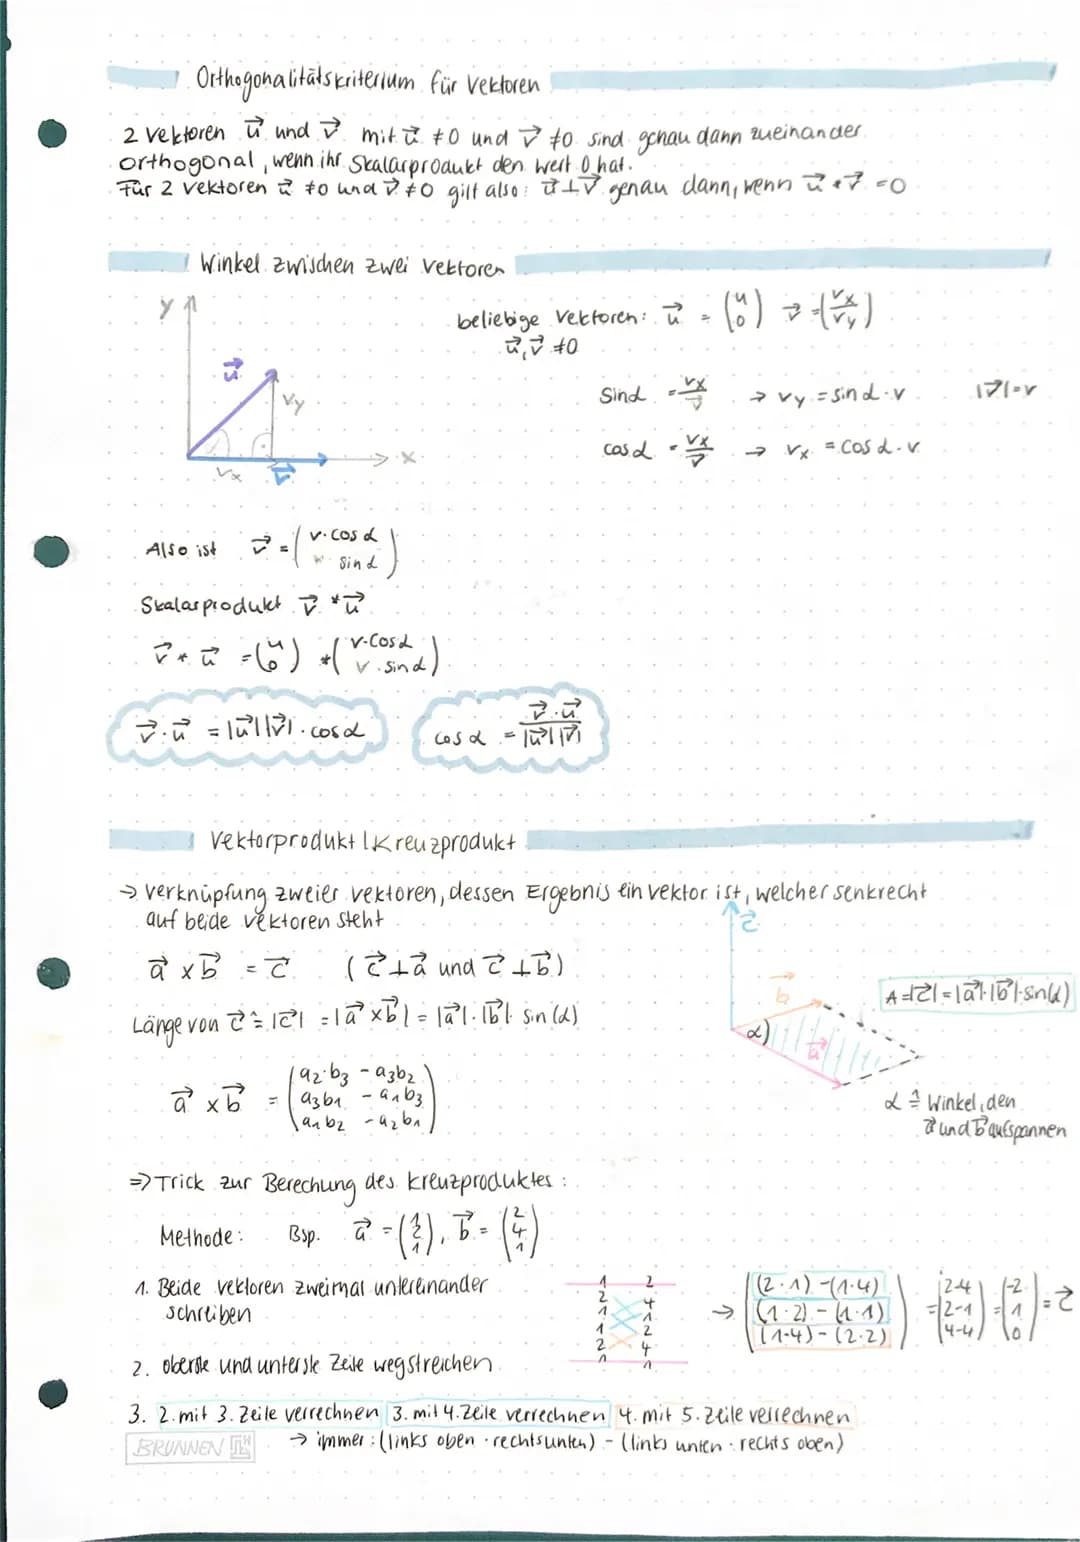 Orthogonalitätskriterium für Vektoren
2 Vektoren u⃗ und v⃗ mit u⃗ ≠0 und v⃗ ≠0 sind genau dann zueinander
orthogonal, wenn ihr Skalarprodukt den Wert 0 hat.
Für 2 Vektoren u⃗ ≠0 und v⃗ ≠0 gilt also: u⃗⊥v⃗ genau dann, wenn u⃗ * v⃗ =0
Winkel zwischen zwei Vektoren
y
u⃗
vy
x
vx
v⃗
beliebige Vektoren: u⃗ = (u 0) v⃗ = (vx vy)
u⃗, v⃗ ≠0
Sin α = vx/v⃗ → vy = sin α · v |v⃗|=v
cos α = vx/v⃗ → vx = cos α · v
Also ist v⃗ = (v · cos α v · sin α)
Skalarprodukt v⃗ * u⃗
v⃗ * u⃗ = (u 0) * (v · cos α v · sin α)
v⃗ · u⃗ = |u⃗||v⃗| · cos α
cos α = v⃗ · u⃗ / |u⃗||v⃗|
Vektorprodukt | Kreuzprodukt
→ Verknüpfung zweier Vektoren, dessen Ergebnis ein Vektor ist, welcher senkrecht
auf beide Vektoren steht
c⃗
a⃗ × b⃗ = c⃗ (c⃗⊥a⃗ und c⃗⊥b⃗)
b⃗
A=|c⃗|=|a⃗|·|b⃗|·sin(α)
Länge von c⃗ ≙ |c⃗| = |a⃗ × b⃗| = |a⃗| · |b⃗| · sin(α)
α
a⃗
a⃗ × b⃗ = (a2·b3 - a3b2
a3b1 - a1b3
a1b2 - a2b1)
α ≙ Winkel, den
a⃗ und b⃗ aufspannen
⇒ Trick zur Berechung des Kreuzproduktes:
Methode: Bsp. a⃗ = (1 2 1), b⃗ = (2 4 1)
1. Beide Vektoren zweimal untereinander
schreiben
1 2
2 4
1 1
1 2
2 4
1 1
→ ((2·1) - (1·4)
(1·2) - (1·1)
(1·4) - (2·2))
= (2-4 2-1 4-4) = (-2 1 0) = c⃗
2. oberste und unterste Zeile wegstreichen
3. 2. mit 3. Zeile verrechnen 3. mit 4. Zeile verrechnen 4. mit 5. Zeile verrechnen
→ immer: (links oben · rechts unten) - (links unten · rechts oben)
BRUNNEN